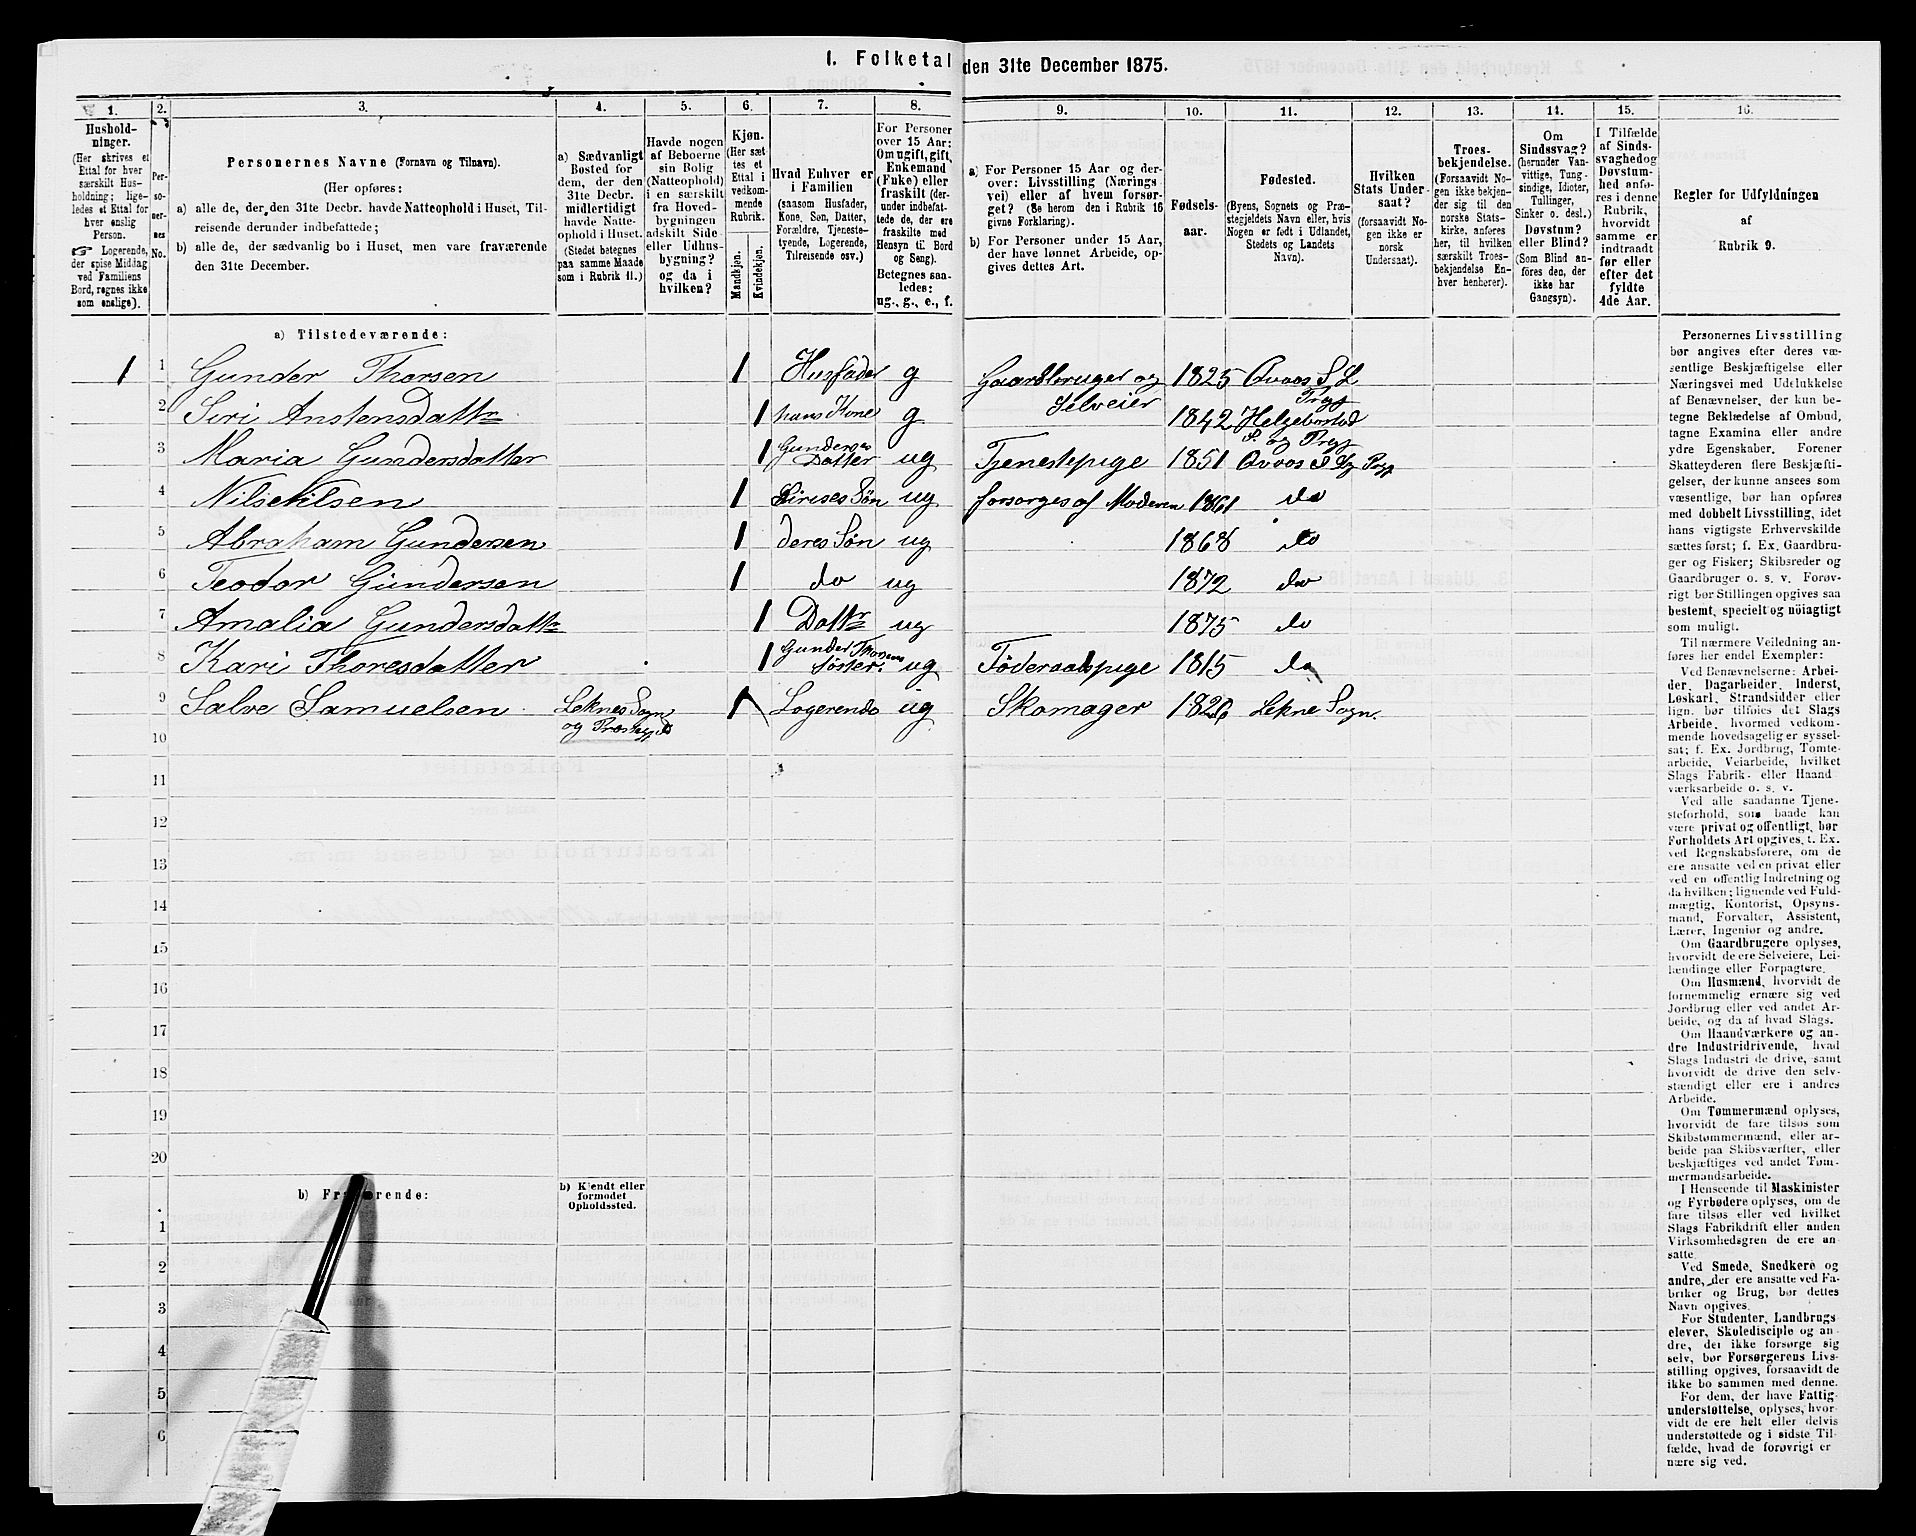 1. Folketal den 31te December 1875.
1. 2. 3. 4. 5. 6. 7. 8. 9. 10. 11. 12. 13. 14. 15. 16.
Hushold-
ninger.
(Her skrives et
Ettal for hver
særskilt Hus-
holdning; lige-
ledes et Ettal for
hver enslig
Person.
☞ Logerende,
der spise Middag
ved Familiens
Bord, regnes ikke
som enslige).
Per-
so-
ner-
nes
No.
Personernes Navne (Fornavn og Tilnavn).
(Her opføres:
a) alle de, der den 31te Decbr. havde Natteophold i Huset, Til-
reisende derunder indbefattede;
b) alle de, der sædvanlig bo i Huset, men vare fraværende
den 31te December.
a) Sædvanligt
Bosted for
dem, der den
31te Decbr.
midlertidigt
havde Natte-
ophold i Huset.
(Stedet betegnes
paa samme Maade
som i Rubrik 11.)
Havde nogen
af Beboerne
sin Bolig
(Natteophold)
i en særskilt
fra Hoved-
bygningen
adskilt Side-
eller Udhus-
bygning?
og da i
hvilken?
Kjøn.
(Her sæt-
tes et
Ettal i
vedkom-
mende
Rubrik.
Mandkjøn.
Kvindekjøn.
Hvad Enhver er
i Familien
(saasom Husfader,
Kone, Søn, Datter,
Forældre, Tjeneste-
tyende, Logerende,
Tilreisende osv.)
For Personer
over 15 Aar:
Om ugift, gift,
Enkemand
(Enke) eller
fraskilt (der-
under indbefat-
tede de, der ere
fraskilte med
Hensyn til Bord
og Seng).
Betegnes saa-
ledes:
ug., g., e., f.
a) For Personer 15 Aar og der-
over: Livsstilling (Nærings-
vei) eller af hvem forsør-
get? (Se herom den i Rubrik 16
givne Forklaring).
b) For Personer under 15 Aar,
der have lønnet Arbeide, op-
gives dettes Art.
Fødsels-
aar.
Fødested.
(Byens, Sognets og Præ-
stegjeldets Navn eller, hvis
Nogen er født i Udlandet,
Stedets og Landets
Navn).
Hvilken
Stats Under-
saat?
(forsaavidt No-
gen ikke er
norsk
Undersaat).
Troes-
bekjendelse.
(Forsaavidt No-
gen ikke bekjen-
der sig til den
norske Stats-
kirke, anføres
her, til hvilken
særskilt Troes-
bekjendelse En-
hver henhører).
Om
Sindssvag?
(herunder Van-
vittige, Tung-
sindige, Idioter,
Tullinger,
Sinker o. desl.)
Døvstum?
eller Blind?
(Som Blind an-
føres den, der
ikke har
Gangsyn).
I Tilfælde
af Sinds-
svaghed og
Døvstum-
hed anfø-
res i denne
Rubrik,
hvorvidt
samme er
indtraadt
før eller
efter det
fyldte
4de Aar.
Regler for Udfyldningen
af
Rubrik 9.
a) Tilstedeværende:
1 1 Gunder Thorsen 1 Husfader g Gaardbruger og Selveier 1825 S L Prgj
2 Siri Anstensdattr 1 hans Kone g 1842 Helgebostad S. og Prgj
3 Maria Gundersdatter 1 Gunderses Datter ug Tjenestepige 1851
4 Nils Nilsen 1 Sirises Søn ug forsorges af Moderen 1861 do
5 Abraham Gundersen 1 deres Søn ug 1868 do
6 Teodor Gundersen 1 do ug 1872 do
7 Amalia Gundersdattr 1 Dattr ug 1875 do
8 Kari Thoresdatter 1 Gunder Thorsens Søster. ug Føderaadspige 1815 do
9 Salve Samuelsen Leknes Sogn og Præstegj 1 Logerende ug Skomager 1826 Lekne Sogn.
10
11
12
13
14
15
16
17
18
19
20
b) Fraværende:
b) Kjendt eller
formodet
Opholdssted.
1
2
3
4
5
6
Personernes Livsstilling
bør angives efter deres væ-
sentlige Beskjæftigelse eller
Næringsvei med Udelukkelse
af Benævnelser, der kun be-
tegne Beklædelse af Ombud,
tagne Examina eller andre
ydre Egenskaber. Forener
Skatteyderen flere Beskjæfti-
gelser, der kunne ansees som
væsentlige, bør han opføres
med dobbelt Livsstilling, idet
hans vigtigste Erhvervskilde
sættes først; f. Ex. Gaardbru-
ger og Fisker; Skibsreder og
Gaardbruger o. s. v. Forøv-
rigt bør Stillingen opgives saa
bestemt, specielt og nöiagtigt
som muligt.
Til nærmere Veiledning an-
føres her endel Exempler:
Ved Benævnelserne: Arbei-
der, Dagarbeider, Inderst,
Løskarl, Strandsidder eller
lign. bør tilføies det Slags
Arbeide, hvormed vedkom-
mende hovedsagelig er syssel-
sat; f. Ex. Jordbrug, Tomte-
arbeide, Veiarbeide, hvilket
Slags Fabrik- eller Haand
værksarbeide o. s. v.
Ved alle saadanne Tjene-
steforhold, som baade kan
være privat og offentligt, bør
Forholdets Art opgives, t. Ex.
ved Regnskabsførere, om de
ere ansatte ved en privat eller
ved en offentlig Indretning og
da hvilken; lignende ved Fuld-
mægtig, Kontorist, Opsyns-
mand, Forvalter, Assistent,
Lærer, Ingeniør og andre.
Om Gaardbrugere oplyses,
hvorvidt de ere Selveiere, Lei-
lændinge eller Forpagtere.
Om Husmænd, hvorvidt de
fornemmelig ernære sig ved
Jordbrug eller ved andet Ar-
beide, og da af hvad Slags.
Om Haandværkere og an-
dre Industridrivende, hvad
Slags Industri de drive, samt
hvorvidt de drive den selv-
stændigt eller ere i andres
Arbeide.
Om Tømmermænd oplyses,
hvorvidt de fare tilsøs som
Skibstømmermænd, eller ar-
beide paa Skibsværfter, eller
beskjæftiges ved andet Tøm-
mermandsarbeide.
I Henseende til Maskinister
og Fyrbødere oplyses, om de
fare tilsøs eller ved hvilket
Slags Fabrikdrift eller anden
Virksomhedsgren de ere an-
satte.
Ved Smede, Snedkere og
andre, der ere ansatte ved Fa-
briker og Brug, bør dettes
Navn opgives.
For Studenter, Landbrugs-
elever, Skoledisciple og an-
dre, der ikke forsørge sig
selv, bør Forsørgerens Livs-
stilling opgives, forsaavidt de
ikke bo sammen med denne.
For dem, der have Fattig-
understøttelse, oplyses, hvor-
vidt de ere helt eller delvis
understøttede og i sidste Til-
fælde, hvad de forøvrigt er
nære sig ved.